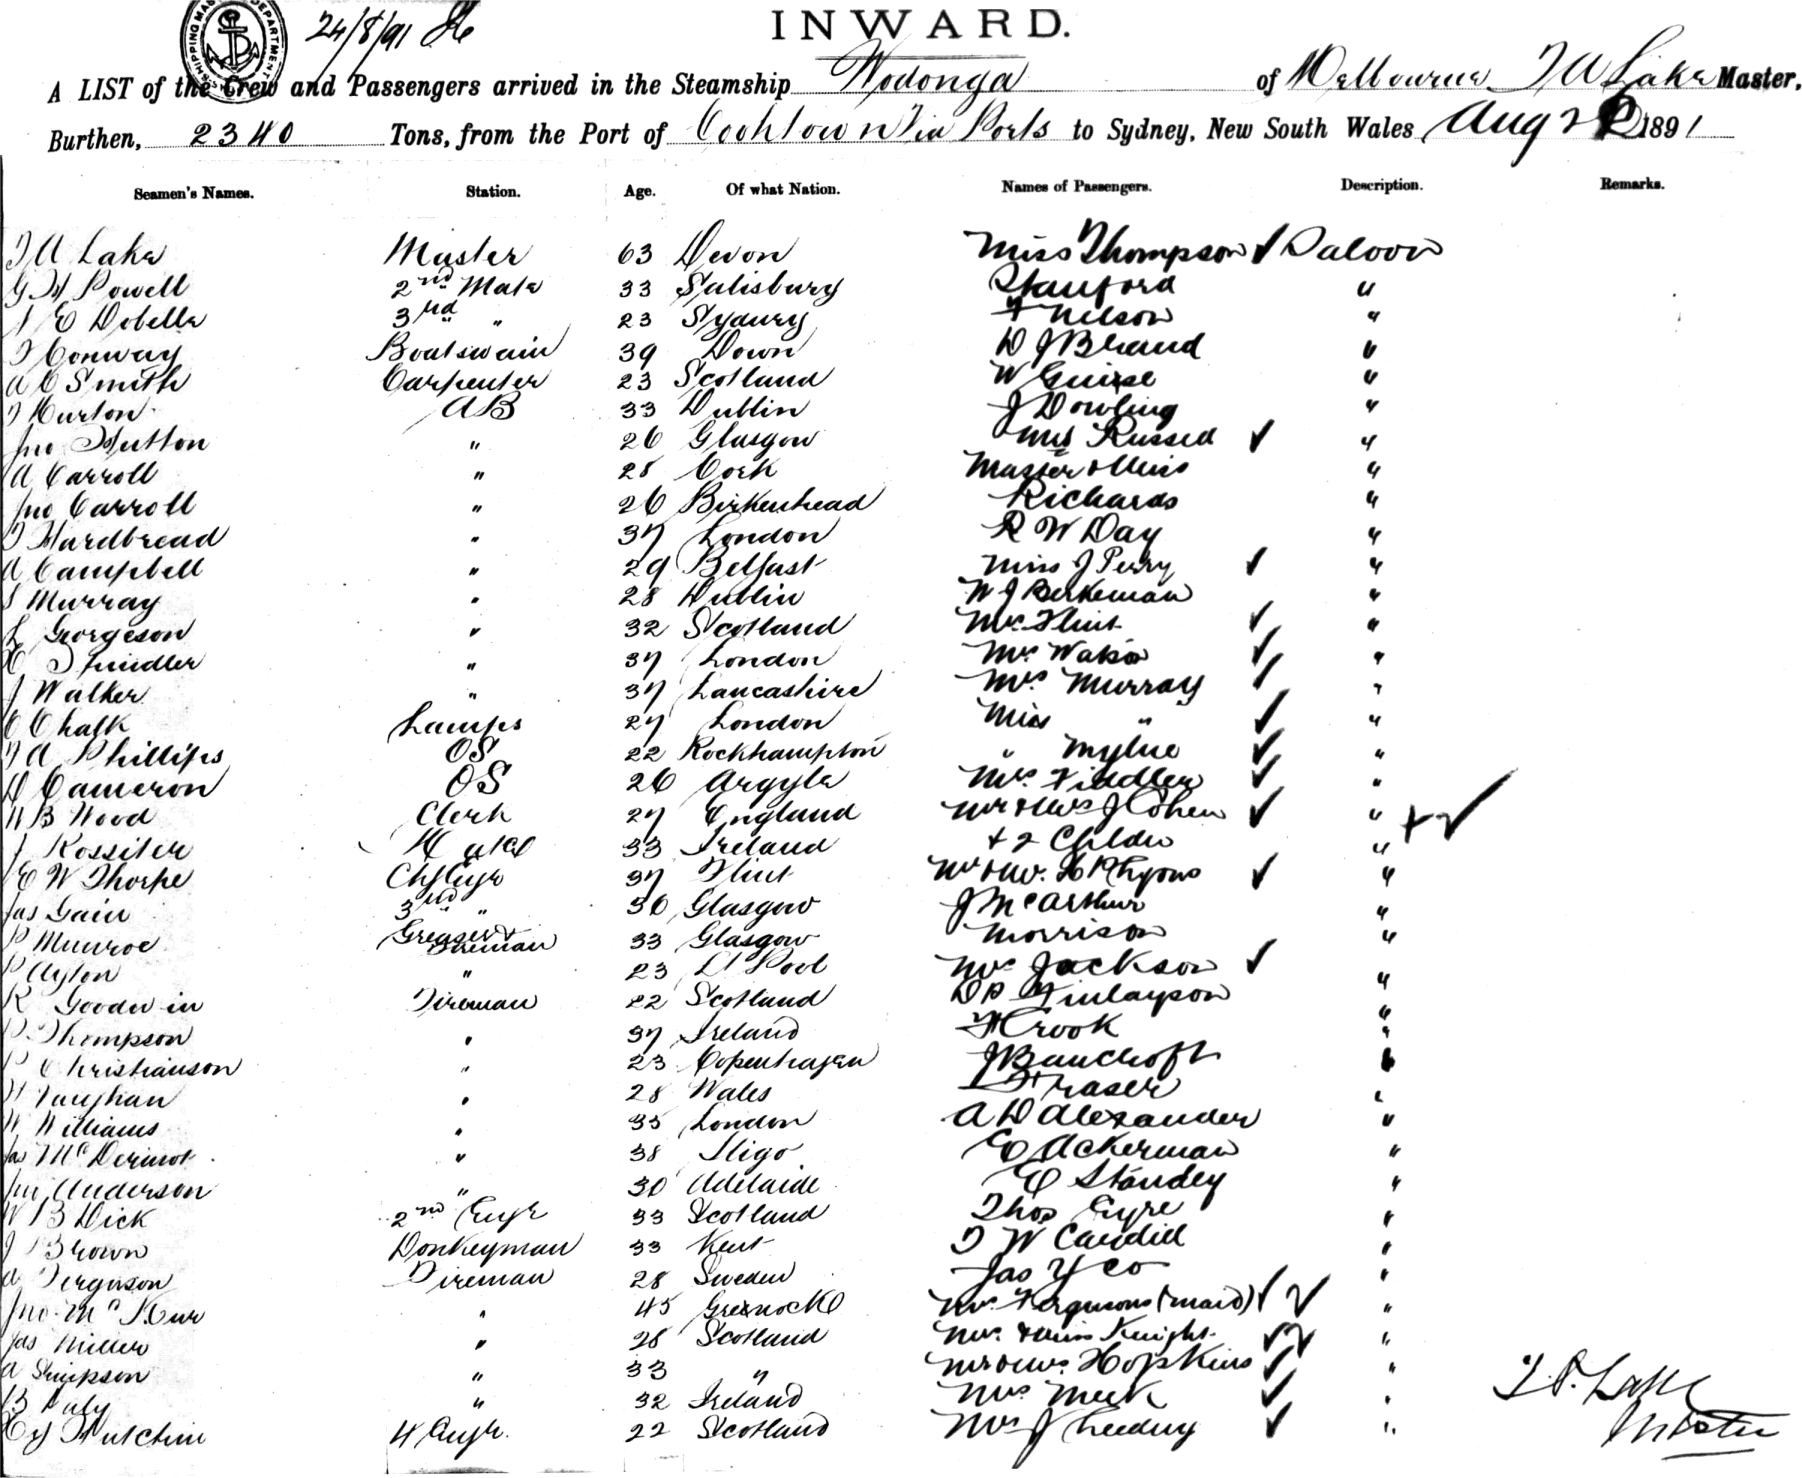 SHIPPING MASTER DEPARTMENT
24/8/91
INWARD.
A LIST of the Crew and Passengers arrived in the Steamship Wodonga of Melbourne T A Lake Master,
Burthen, 2340 Tons, from the Port of Cooktown Via Ports to Sydney, New South Wales Aug 1891
Seamen's Names. Station. Age. Of what Nation. Names of Passengers. Description. Remarks.
T A Lake Master 63 Devon Miss Thompson ✓ Saloon
G H Powell 2nd Mate 33 Salisbury Stanford "
E Dobelle 3rd " 23 Sydney F Nelson "
T Conway Boatswain 39 Down D J Brand "
A C Smith Carpenter 23 Scotland W Guise "
T Murton AB 33 Dublin J Dowling "
Jno Hutton " 26 Glasgow Mrs Russed ✓ "
A Carroll " 28 Cork Master & Miss "
Jno Carroll " 26 Birkenhead Richards "
T Hardbread " 37 London R W Day "
A Campbell " 29 Belfast Miss J Perry ✓ "
S Murray " 28 Dublin W J Berkeman "
L Georgeson " 32 Scotland Mrs Flint ✓ "
H Spindler " 37 London Mrs ✓ "
J Walker " 37 Lancashire Mrs Murray ✓ "
C Chalk Lamps 27 London Miss " ✓ "
T A Phillips OS 22 Rockhampton " Mylne ✓ "
D Cameron OS 26 Argyle Mrs Fiddler ✓ "
W B Wood Clerk 27 England Mr & Mrs J Cohen ✓ " + ✓
J Rossiter 33 Ireland + 2 Childn "
E W Thorpe Chf Engr 37 Flint Mr & Mrs H P Lyons ✓ "
Jas Gain 3rd " 30 Glasgow J McArthur "
P Munroe Greaser & Fireman 33 Glasgow Morrison "
P Ayton " 23 L'Pool Mrs Jackson ✓ "
R Goodwin Fireman 22 Scotland D P Finlayson "
P Thompson " 37 Ireland F Crook "
P Christianson " 23 Copenhagen J Bancroft "
W Vaughan " 28 Wales Fraser "
W Williams " 35 London A D Alexander "
Jas McDermot " 38 Sligo E Ackerman "
Jno Anderson " 30 Adelaide E Standey "
W B Dick 2nd Engr 33 Scotland Thos Eyre "
J Brown Donkeyman 33 Kent T W Candid "
A Ferguson Fireman 28 Sweden Jas Y Co "
Jno Mc " 45 Greenock Mrs Fergusons (maid) ✓ ✓ "
Jas Miller " 28 Scotland Mrs & Miss Knight ✓ ✓ "
A Simpson " 33 " Mr & Mrs Hopkins ✓ "
B Daly " 32 Ireland Mrs Meek ✓ "
Hy Hutchin 4 Engr. 22 Scotland Mrs J ✓ "
T A Lake
Master